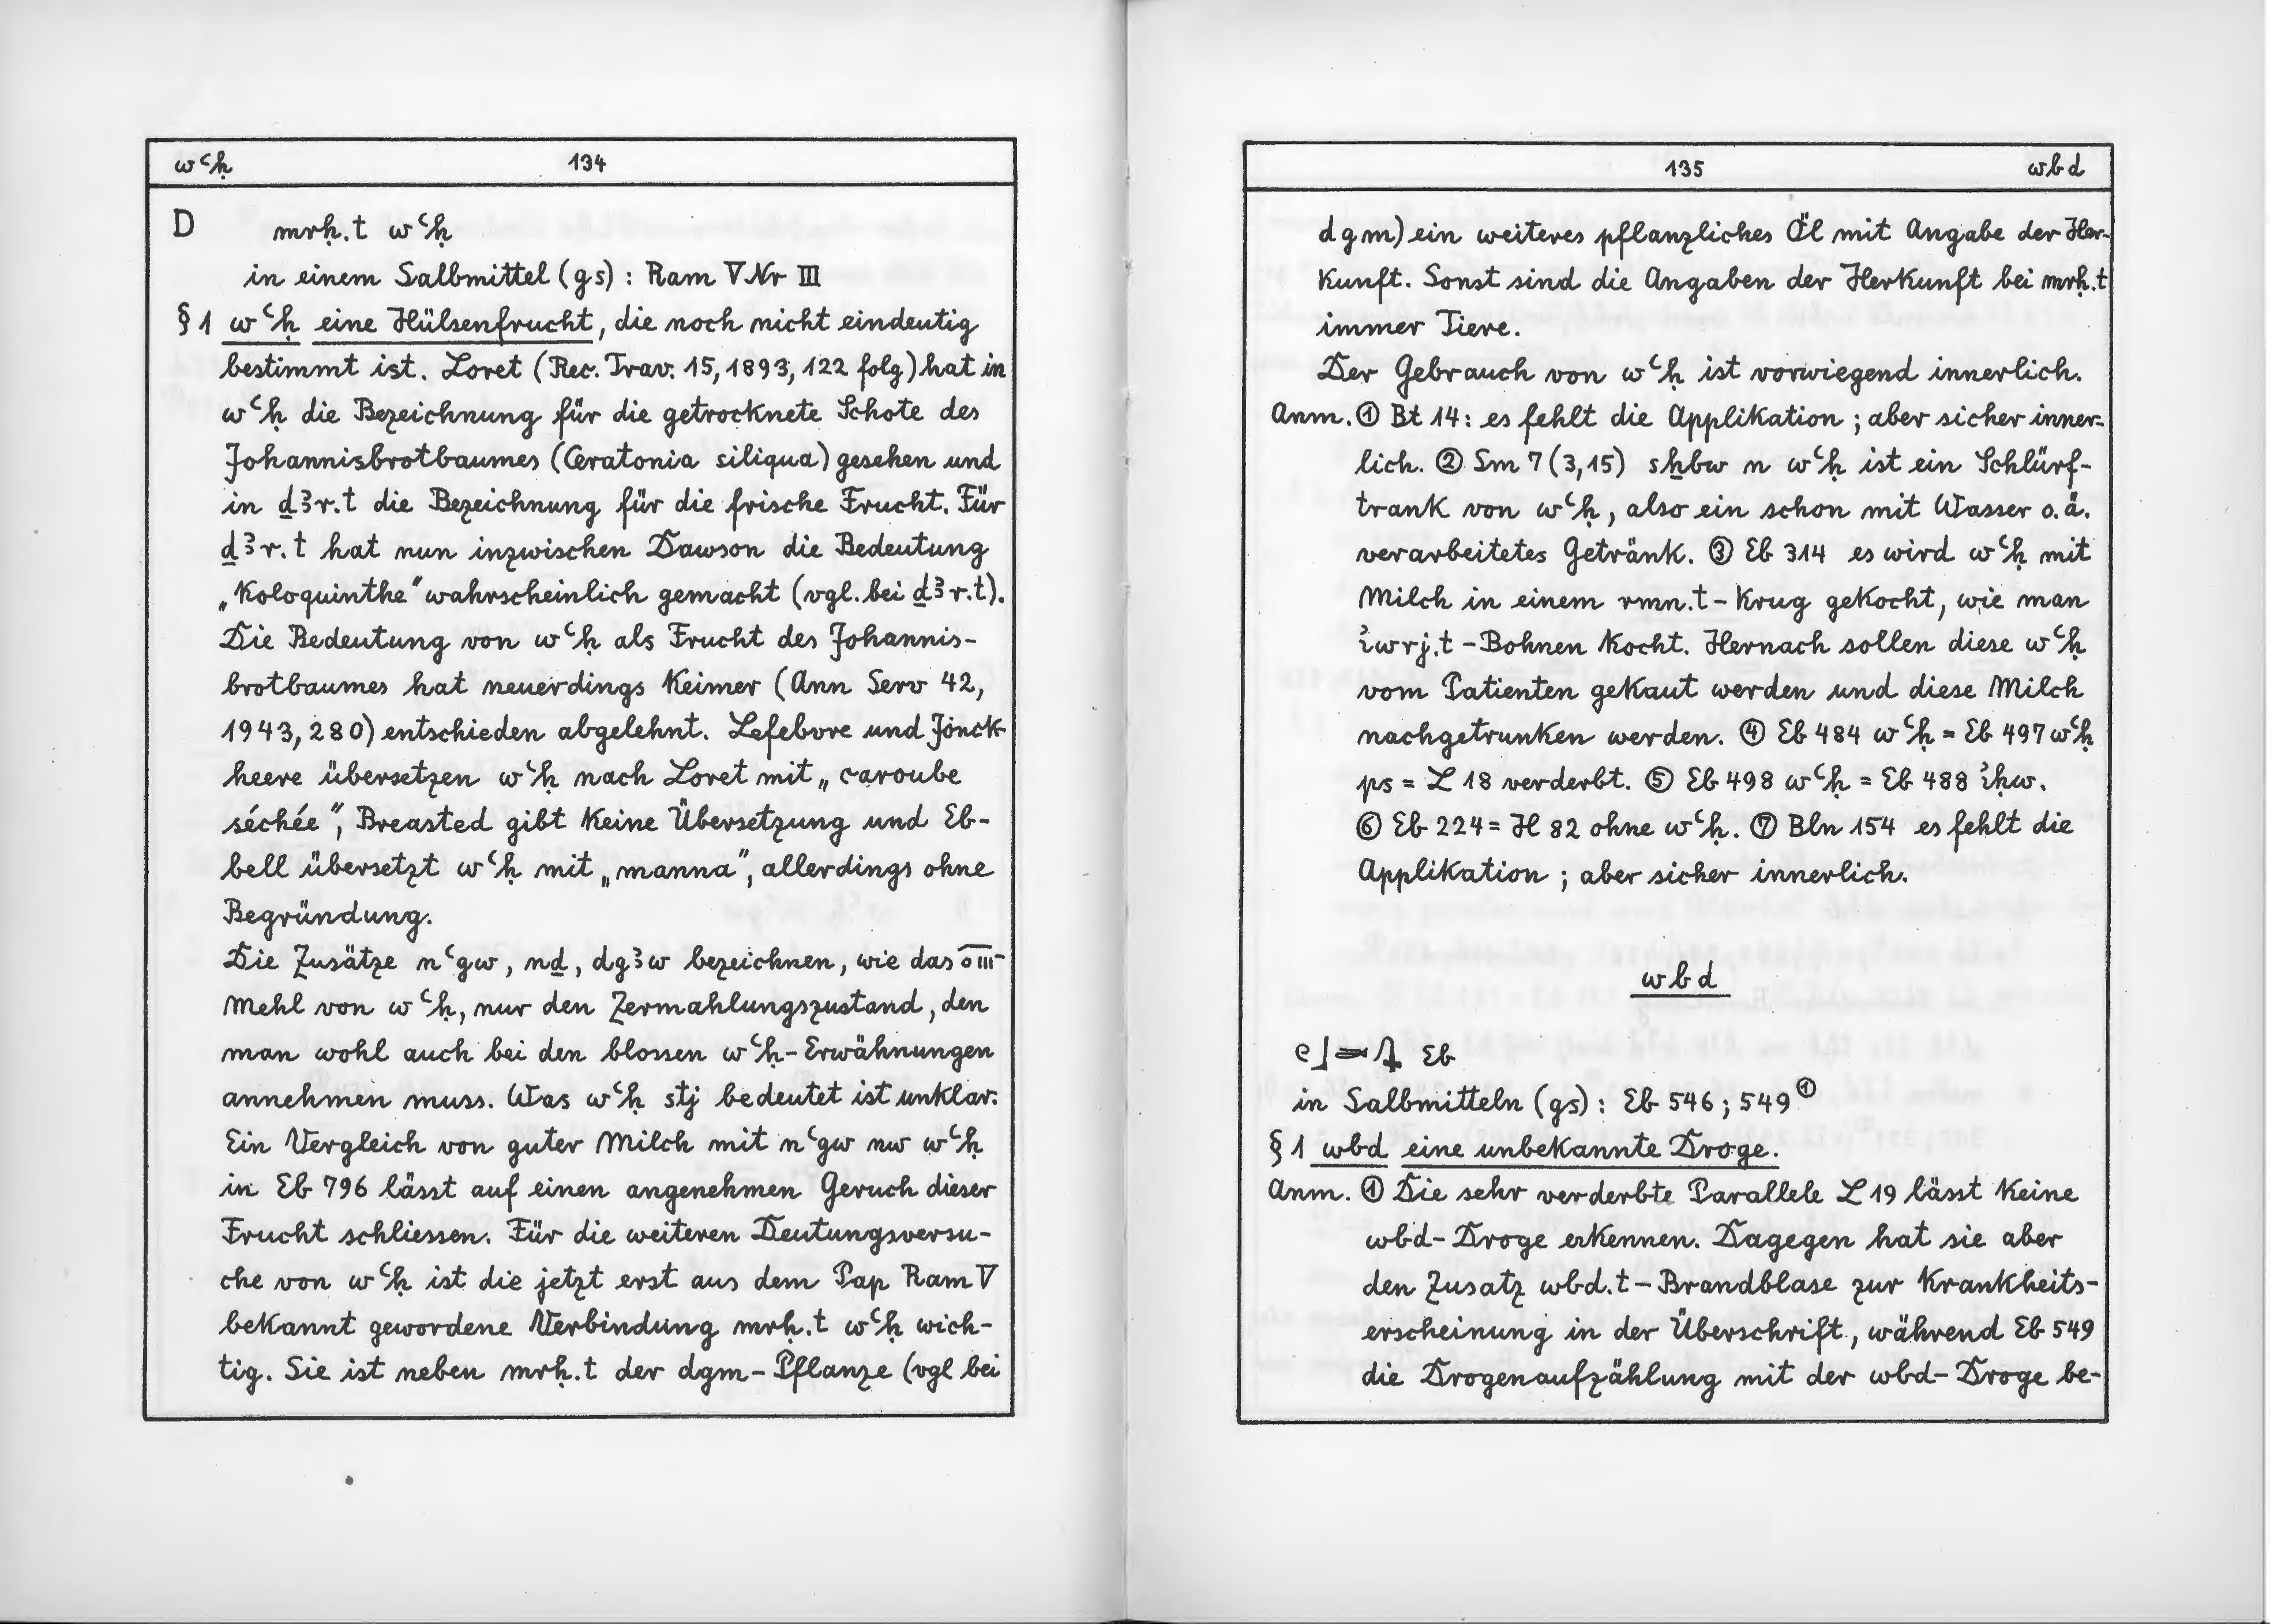 wꜥḥ 134
D mrḥ.t wꜥḥ
in einem Salbmittel (gs) : Ram V Nr III
§ 1 wꜥḥ eine Hülsenfrucht, die noch nicht eindeutig
bestimmt ist. Loret (Rec. Trav. 15, 1893, 122 folg) hat in
wꜥḥ die Bezeichnung für die getrocknete Schote des
Johannisbrotbaumes (Ceratonia siliqua) gesehen und
in ḏꜣr.t die Bezeichnung für die frische Frucht. Für
ḏꜣr.t hat nun inzwischen Dawson die Bedeutung
„Koloquinthe" wahrscheinlich gemacht (vgl. bei ḏꜣr.t).
Die Bedeutung von wꜥḥ als Frucht des Johannis-
brotbaumes hat neuerdings Keimer (Ann Serv 42,
1943, 280) entschieden abgelehnt. Lefebvre und Jonck-
heere übersetzen wꜥḥ nach Loret mit „caroube
séchée", Breasted gibt keine Übersetzung und Eb-
bell übersetzt wꜥḥ mit „manna", allerdings ohne
Begründung.
Die Zusätze nꜥgw, nḏ, dgꜣw bezeichnen, wie das
Mehl von wꜥḥ, nur den Zermahlungszustand, den
man wohl auch bei den blossen wꜥḥ-Erwähnungen
annehmen muss. Was wꜥḥ stj bedeutet ist unklar.
Ein Vergleich von guter Milch mit nꜥgw nw wꜥḥ
in Eb 796 lässt auf einen angenehmen Geruch dieser
Frucht schliessen. Für die weiteren Deutungsversu-
che von wꜥḥ ist die jetzt erst aus dem Pap Ram V
bekannt gewordene Verbindung mrḥ.t wꜥḥ wich-
tig. Sie ist neben mrḥ.t der dgm-Pflanze (vgl bei
135 wbd
dgm) ein weiteres pflanzliches Öl mit Angabe der Her-
kunft. Sonst sind die Angaben der Herkunft bei mrḥ.t
immer Tiere.
Der Gebrauch von wꜥḥ ist vorwiegend innerlich.
Anm. ① Bt 14: es fehlt die Applikation ; aber sicher inner-
lich. ② Sm 7 (3,15) sẖbw n wꜥḥ ist ein Schlürf-
trank von wꜥḥ, also ein schon mit Wasser o.ä.
verarbeitetes Getränk. ③ Eb 314 es wird wꜥḥ mit
Milch in einem rmn.t-Krug gekocht, wie man
ꞽwrj.t-Bohnen kocht. Hernach sollen diese wꜥḥ
vom Patienten gekaut werden und diese Milch
nachgetrunken werden. ④ Eb 484 wꜥḥ = Eb 497 wꜥḥ
ps = L 18 verderbt. ⑤ Eb 498 wꜥḥ = Eb 488 ꞽḥw.
⑥ Eb 224 = H 82 ohne wꜥḥ. ⑦ Bln 154 es fehlt die
Applikation ; aber sicher innerlich.
wbd
Eb
in Salbmitteln (gs) : Eb 546 ; 549 ①
§ 1 wbd eine unbekannte Droge.
Anm. ① Die sehr verderbte Parallele L 19 lässt keine
wbd-Droge erkennen. Dagegen hat sie aber
den Zusatz wbd.t-Brandblase zur Krankheits-
erscheinung in der Überschrift, während Eb 549
die Drogenaufzählung mit der wbd-Droge be-